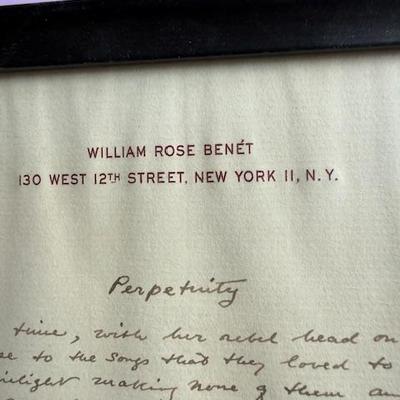 WILLIAM ROSE BENÉT
130 WEST 12TH STREET, NEW YORK 11, N.Y.
Perpetuity
time, with her rebel head on
to the songs that they loved to
making none of them